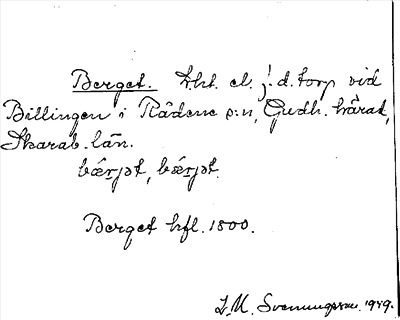 Berget. Lht. el. j. d. torp vid
Billingen i Rådene s:n, Gudh. härad,
Skarab. län.
bǽrjət, bǽrjət.
Berget hfl. 1800.
L. M. Svenungsson. 1929.